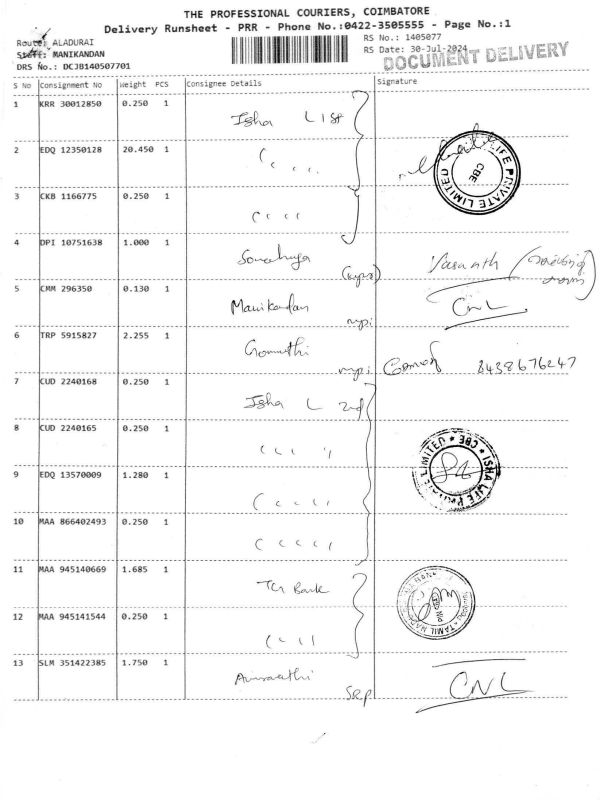 THE PROFESSIONAL COURIERS, COIMBATORE
Delivery Runsheet - PRR - Phone No.:0422-3505555 - Page No.:1
Route: ALADURAI
Staff: MANIKANDAN
DRS No.: DCJB140507701
RS No.: 1405077
RS Date: 30-Jul-2024
DOCUMENT DELIVERY
S No Consignment No Weight PCS Consignee Details Signature
1 KRR 30012850 0.250 1 Isha L 1st
2 EDQ 12350128 20.450 1
LIFE PRIVATE LIMITED CBE
3 CKB 1166775 0.250 1
4 DPI 10751638 1.000 1 Vasanth
5 CMM 296350 0.130 1 Manikandan CNL
6 TRP 5915827 2.255 1 Gomathi 8438676247
7 CUD 2240168 0.250 1 Isha L 2nd
8 CUD 2240165 0.250 1
ISHA LIFE PRIVATE LIMITED * CBE *
9 EDQ 13570009 1.280 1
10 MAA 866402493 0.250 1
11 MAA 945140669 1.685 1 Bank
TAMIL
12 MAA 945141544 0.250 1
13 SLM 351422385 1.750 1 CNL